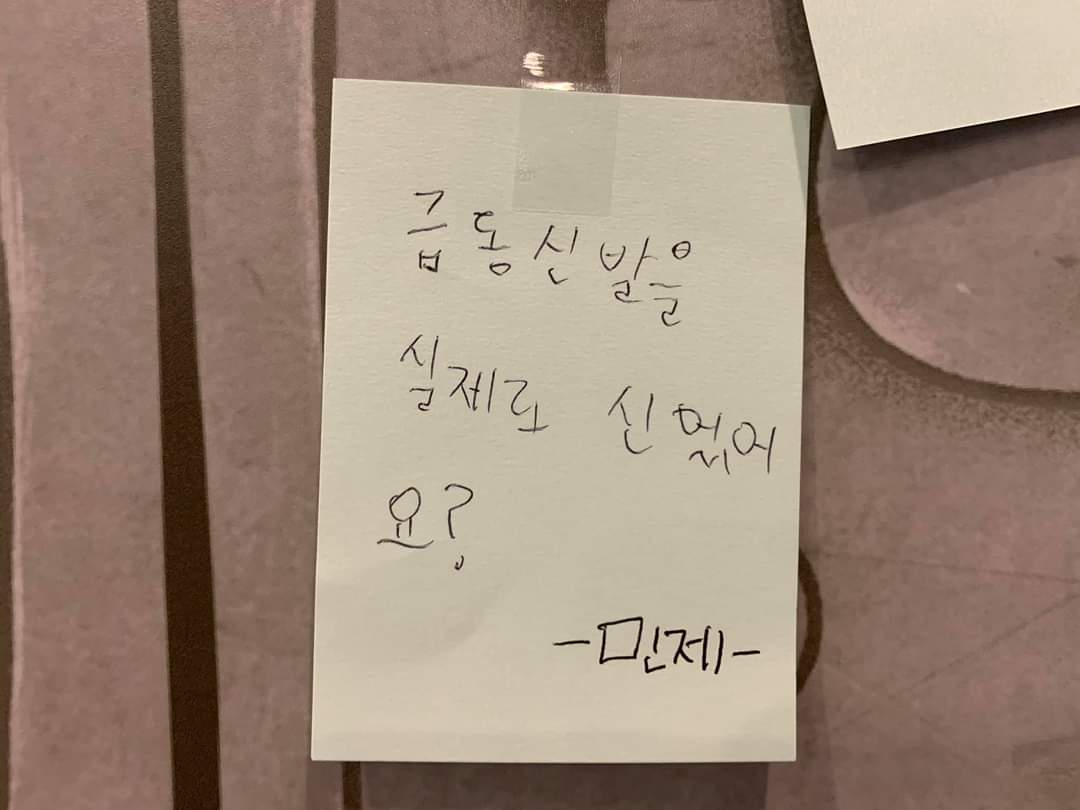 금동신발을
실제로 신었어
요?
-민제-